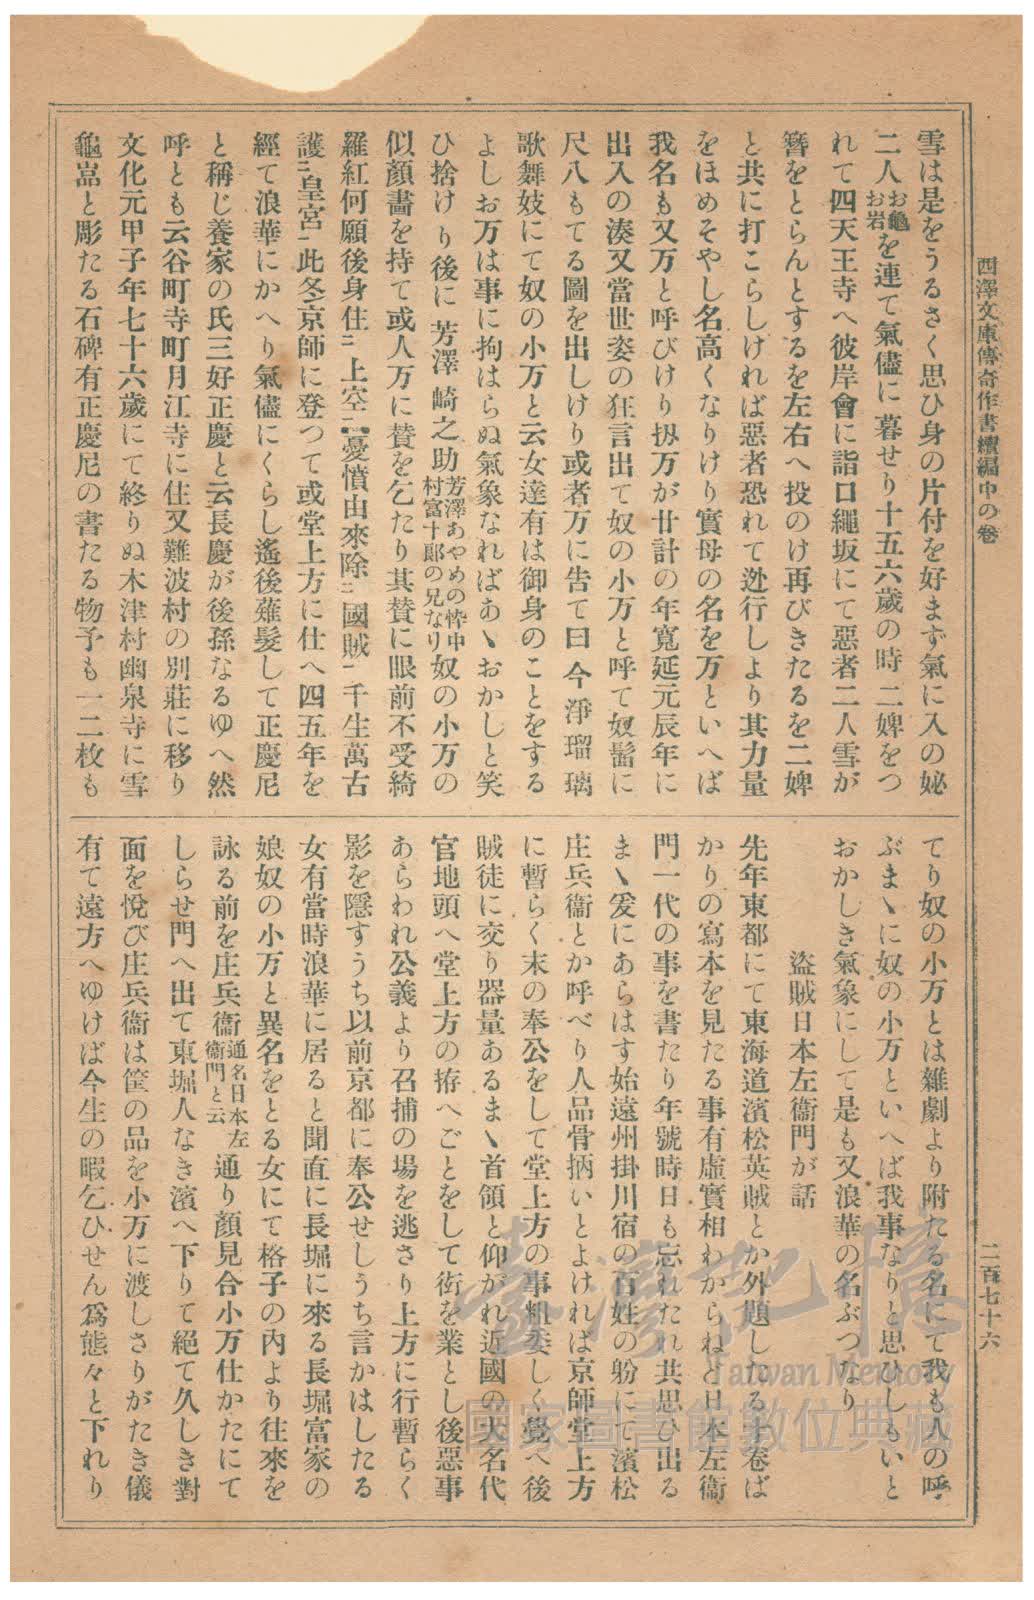 西澤文庫傳奇作書續編中の卷
二百七十六
雪は是をうるさく思ひ身の片付を好まず氣に入の婢
二人お龜お岩を連て氣儘に暮せり十五六歲の時二婢をつ
れて四天王寺へ彼岸會に詣口繩坂にて惡者二人雪が
簪をとらんとするを左右へ投のけ再びきたるを二婢
と共に打こらしければ惡者恐れて迯行しより其力量
をほめそやし名高くなりけり實母の名を万といへば
我名も又万と呼びけり扨万が廿計の年寬延元辰年に
出入の湊又當世姿の狂言出て奴の小万と呼て奴髷に
尺八もてる圖を出しけり或者万に告て曰今淨瑠璃
歌舞妓にて奴の小万と云女達有は御身のことをする
よしお万は事に拘はらぬ氣象なればあゝおかしと笑
ひ捨けり後に芳澤崎之助芳澤あやめの忰中村富十郞の兄なり奴の小万の
似顏畵を持て或人万に賛を乞たり其賛に眼前不受綺
羅紅何願後身住二上空一憂憤由來除二國賊一千生萬古
護二皇宮一此冬京師に登つて或堂上方に仕へ四五年を
經て浪華にかへり氣儘にくらし遙後薙髮して正慶尼
と稱じ養家の氏三好正慶と云長慶が後孫なるゆへ然
呼とも云谷町寺町月江寺に住又難波村の別莊に移り
文化元甲子年七十六歲にて終りぬ木津村幽泉寺に雪
龜嵓と彫たる石碑有正慶尼の書たる物予も一二枚も
てり奴の小万とは雜劇より附たる名にて我も人の呼
ぶまゝに奴の小万といへば我事なりと思ひしもいと
おかしき氣象にして是も又浪華の名ぶつなり
盜賊日本左衞門が話
先年東都にて東海道濱松英賊とか外題したる予卷ば
かりの寫本を見たる事有虛實相わからねど日本左衞
門一代の事を書たり年號時日も忘れたれ共思ひ出る
まゝ爰にあらはす始遠州掛川宿の百姓の躮にて濱松
庄兵衞とか呼べり人品骨柄いとよければ京師堂上方
に暫らく末の奉公をして堂上方の事粗委しく覺へ後
賊徒に交り器量あるまゝ首領と仰がれ近國の大名代
官地頭へ堂上方の拵へごとをして衒を業とし後惡事
あらわれ公義より召捕の場を逃さり上方に行暫らく
影を隱すうち以前京都に奉公せしうち言かはしたる
女有當時浪華に居ると聞直に長堀に來る長堀富家の
娘奴の小万と異名をとる女にて格子の內より往來を
詠る前を庄兵衞通名日本左衞門と云通り顏見合小万仕かたにて
しらせ門へ出て東堀人なき濱へ下りて絕て久しき對
面を悅び庄兵衞は筐の品を小万に渡しさりがたき儀
有て遠方へゆけば今生の暇乞ひせん爲態々と下れり
臺灣記憶
Taiwan Memory
國家圖書館數位典藏